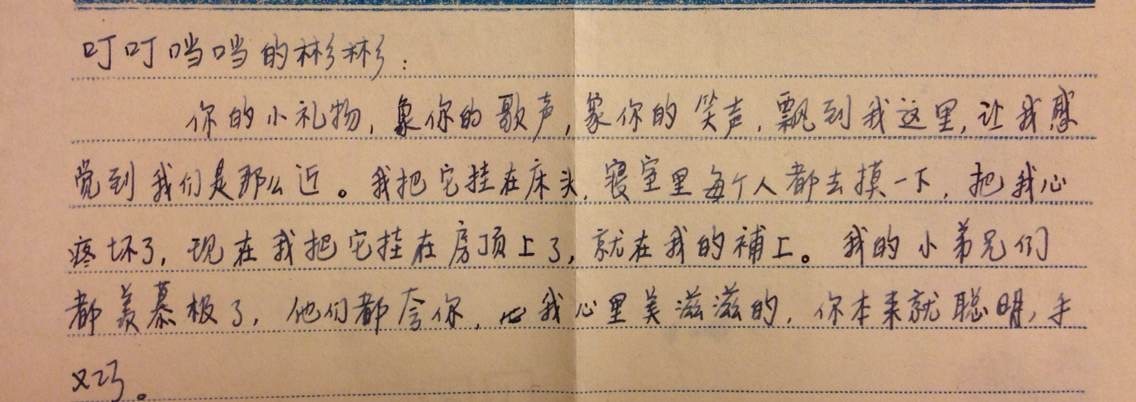 叮叮当当的彬彬：
你的小礼物，象你的歌声，象你的笑声，飘到我这里，让我感
觉到我们是那么近。我把它挂在床头，寝室里每个人都去摸一下，把我心
疼坏了，现在我把它挂在房顶上了，就在我的補上。我的小弟兄们
都羡慕极了，他们都夸你，我心里美滋滋的，你本来就聪明，手
又巧。